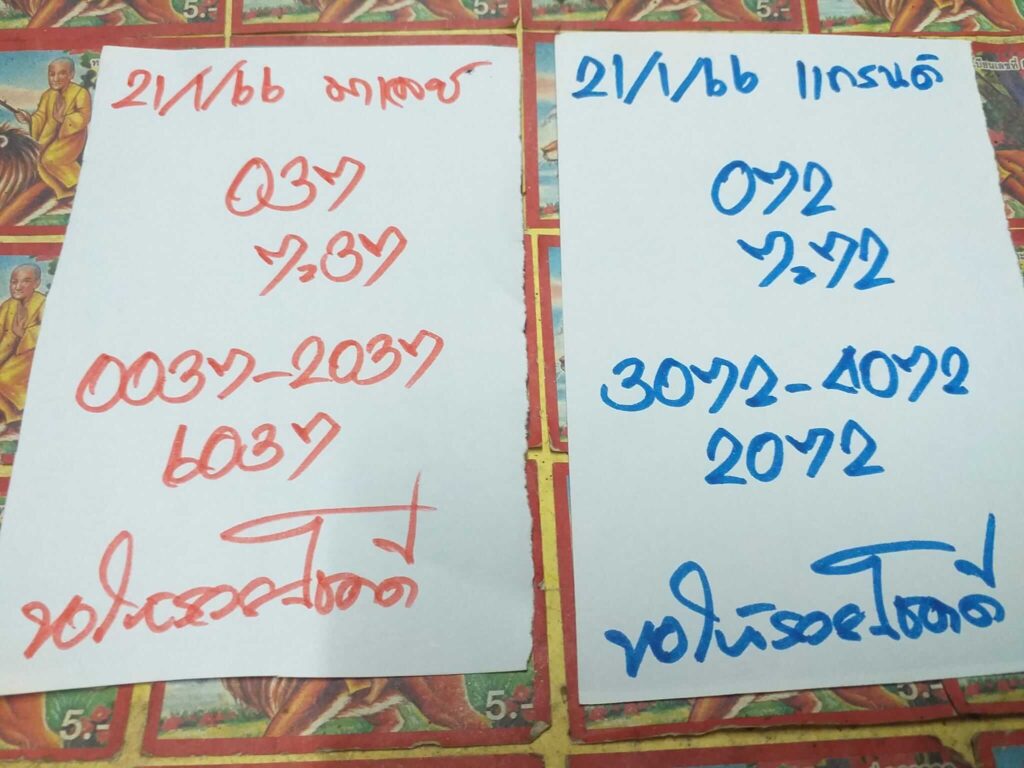 21/1/66 มาเลย์
037
7=37
0037-2037
6037
ขอให้รวยโชคดี
21/1/66 แกรนด์
072
7=72
3072-4072
2072
ขอให้รวยโชคดี
5.-
5.-
5.-
5.-
5.-